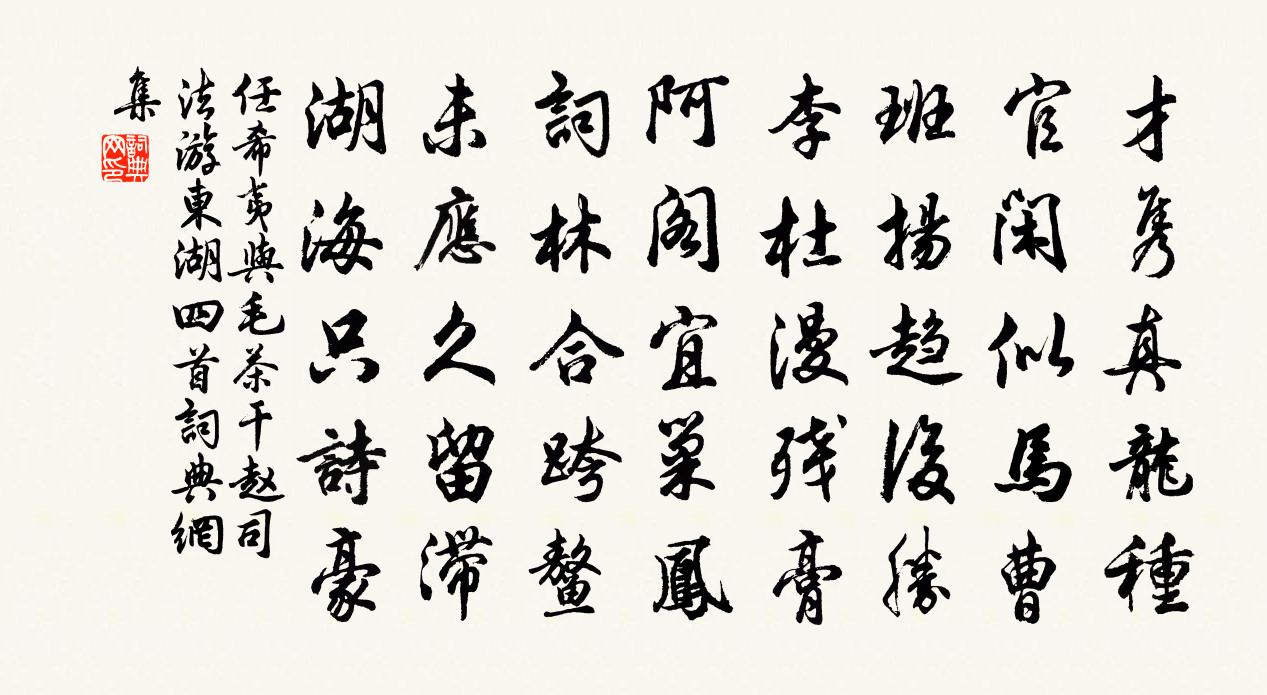 才隽真龍種
官閑似馬曹
班揚趨後勝
李杜漫殘膏
阿閣宜巢鳳
詞林合跨鰲
未應久留滯
湖海只詩豪
任希夷與毛茶干赵司
法游東湖四首詞典網
集
詞典網印